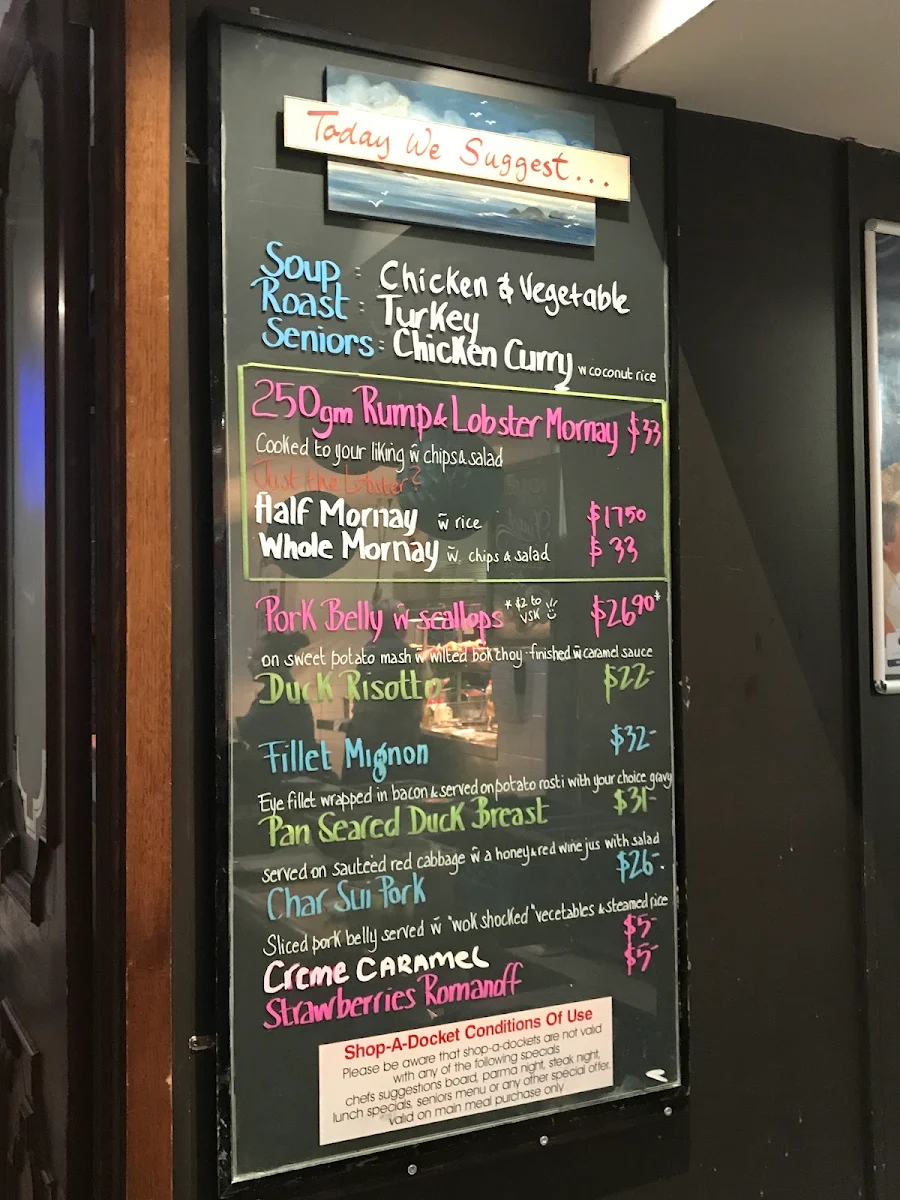 Today We Suggest...
Soup : Chicken & Vegetable
Roast : Turkey
Seniors : Chicken Curry w coconut rice
250gm Rump & Lobster Mornay $33
Cooked to your liking w̄ chips & salad
Just the Lobster?
Half Mornay w̄ rice $1750
Whole Mornay w̄. chips & salad $33
Pork Belly w̄ scallops *$2 to VSK $2690*
on sweet potato mash w̄ wilted bok choy finished w̄ caramel sauce
Duck Risotto $22-
Fillet Mignon $32-
Eye fillet wrapped in bacon & served on potato rosti with your choice gravy
Pan Seared Duck Breast $31-
served on sauteed red cabbage w̄ a honey & red wine jus with salad
Char Sui Pork $26-.
Sliced pork belly served w̄ "wok shocked" vecetables & steamed rice
Creme CARAMEL $5-
Strawberries Romanoff $5-
Shop-A-Docket Conditions Of Use
Please be aware that shop-a-dockets are not valid
with any of the following specials
chefs suggestions board, parma night, steak night,
lunch specials, seniors menu or any other special offer.
valid on main meal purchase only